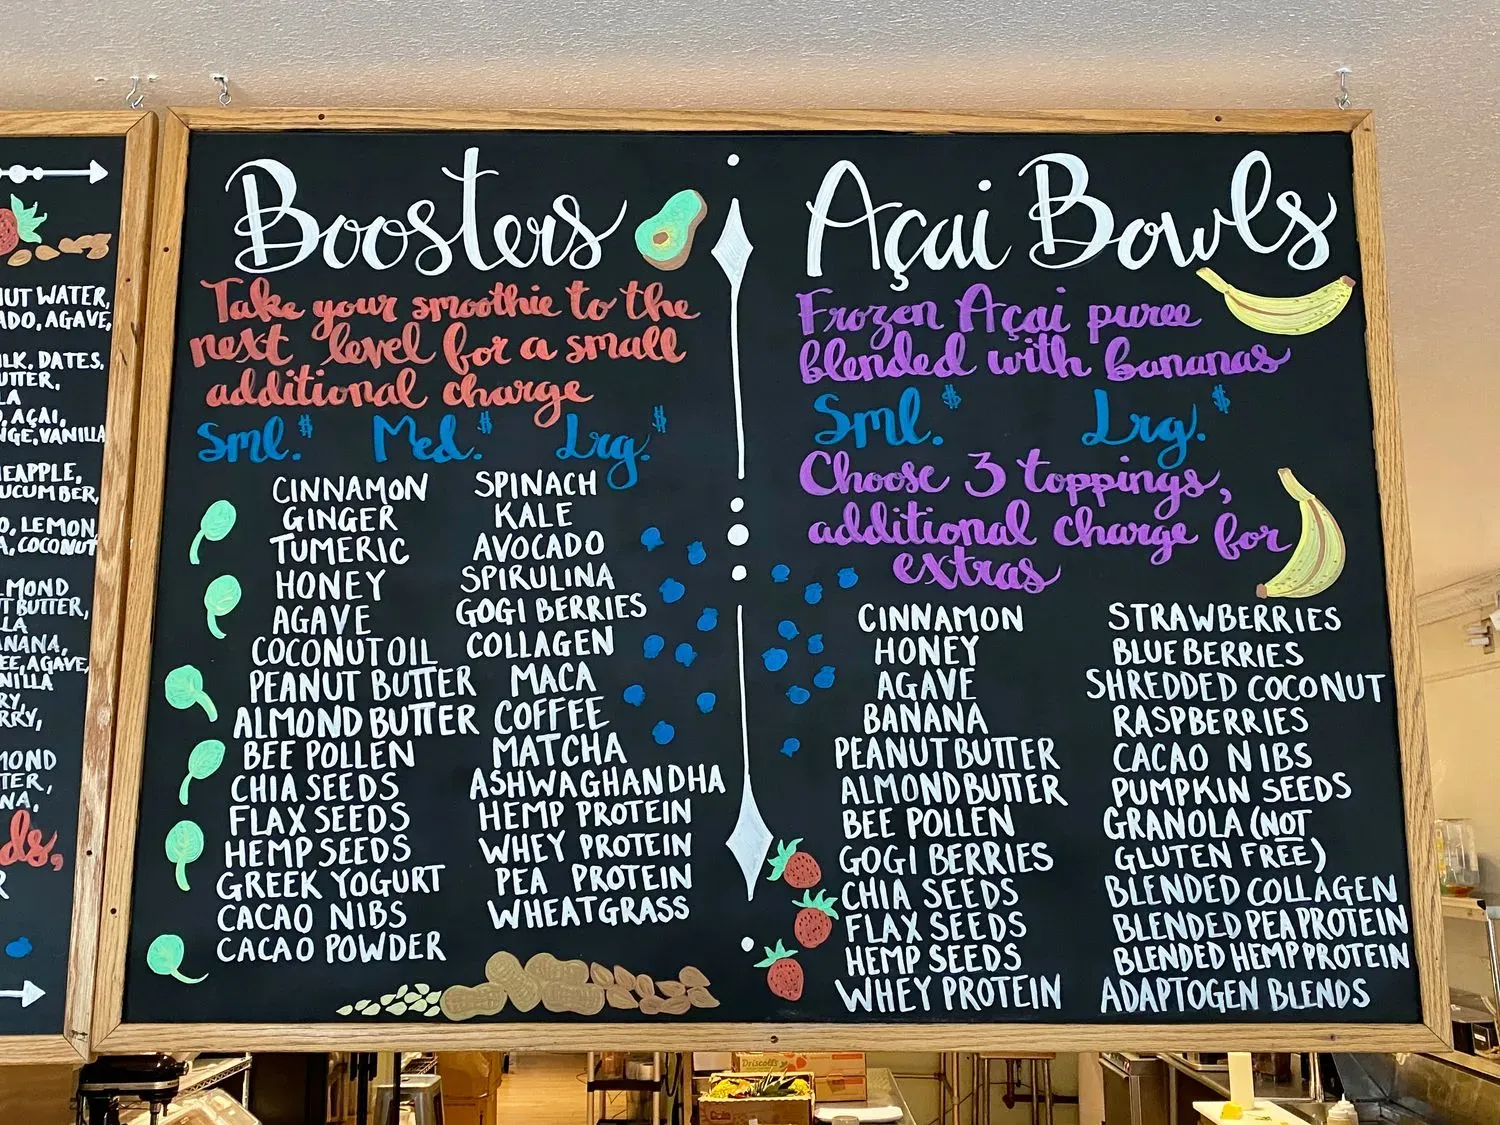 NUT WATER,
ADO, AGAVE,
ILK, DATES,
UTTER,
LA
O, AÇAI,
NGE, VANILLA
NEAPPLE,
CUCUMBER,
O, LEMON,
A, COCONUT
LMOND
T BUTTER,
LLA
ANANA,
EE, AGAVE,
NILLA
RY,
RRY,
MOND
TER,
NA,
ds,
R
Boosters
Take your smoothie to the
next level for a small
additional charge
Sml.$ Med.$ Lrg.$
CINNAMON
GINGER
TUMERIC
HONEY
AGAVE
COCONUT OIL
PEANUT BUTTER
ALMOND BUTTER
BEE POLLEN
CHIA SEEDS
FLAX SEEDS
HEMP SEEDS
GREEK YOGURT
CACAO NIBS
CACAO POWDER
SPINACH
KALE
AVOCADO
SPIRULINA
GOGI BERRIES
COLLAGEN
MACA
COFFEE
MATCHA
ASHWAGHANDHA
HEMP PROTEIN
WHEY PROTEIN
PEA PROTEIN
WHEATGRASS
Açai Bowls
Frozen Açai puree
blended with bananas
Sml.$ Lrg.$
Choose 3 toppings,
additional charge for
extras
CINNAMON
HONEY
AGAVE
BANANA
PEANUT BUTTER
ALMOND BUTTER
BEE POLLEN
GOGI BERRIES
CHIA SEEDS
FLAX SEEDS
HEMP SEEDS
WHEY PROTEIN
STRAWBERRIES
BLUEBERRIES
SHREDDED COCONUT
RASPBERRIES
CACAO NIBS
PUMPKIN SEEDS
GRANOLA (NOT
GLUTEN FREE)
BLENDED COLLAGEN
BLENDED PEA PROTEIN
BLENDED HEMP PROTEIN
ADAPTOGEN BLENDS
Driscoll's
Dole